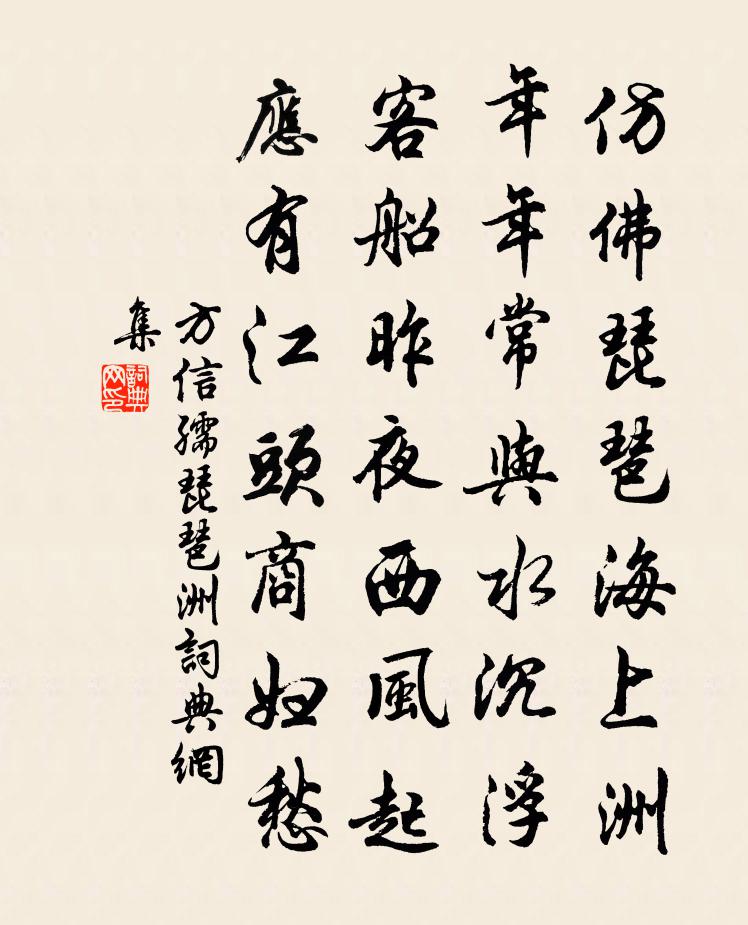 仿佛琵琶海上洲
年年常與水沉浮
客船昨夜西風起
應有江頭商婦愁
方信孺琵琶洲詞典網
集
詞典
网印